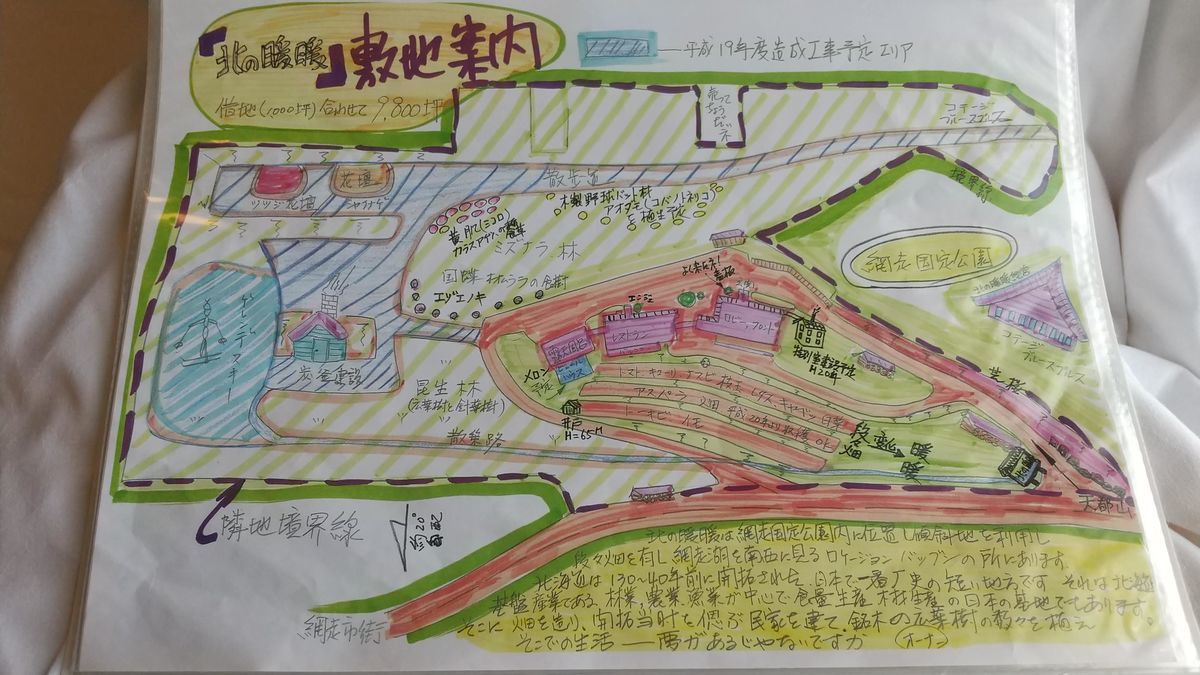 『北の暖暖』敷地案内
借地(1,000坪)合わせて9,800坪
平成19年度造成工事予定エリア
売ってちょうだいネ
コテージ
ブルースブルス
境界線
花壇
ツツジ花壇
シャクナゲ
散歩道
木製野球バット材
アオダモ(コバノトネリコ)
を植生予定
黄肌(シコロ)
ミズナラ林
国蝶 オオムラサキの食樹
エゾエノキ
網走国定公園
よく来たネ!
看板
北の暖暖
コテージ
ブルースブルス
レストラン
ロビー、フロント
ハウス
メロン
H20年
炭釜
昆生林
(広葉樹と針葉樹)
散策路
井戸
H=65M
トマト キューリ ナスビ 枝豆 レタス キャベツ 白菜
アスパラ 畑 平成20年より収穫OK
トーキビ イモ
段々畑
暖暖
天都山
隣地境界線
約20°
勾配
網走市街
北の暖暖は網走国定公園内に位置し傾斜地を利用し
段々畑を有し網走湖を南西に見るロケーションバツグンの所にあります。
北海道は130~40年前に開拓された、日本で一番歴史の短い地方です それは北海道
基盤産業である、林業、農業、漁業が中心で食量生産、木材生産の日本の基地でもあります。
そこに畑を造り、開拓当時を偲ぶ民家を建て銘木の広葉樹の数々を植え
そこでの生活――夢があるじゃないですか (オーナー)